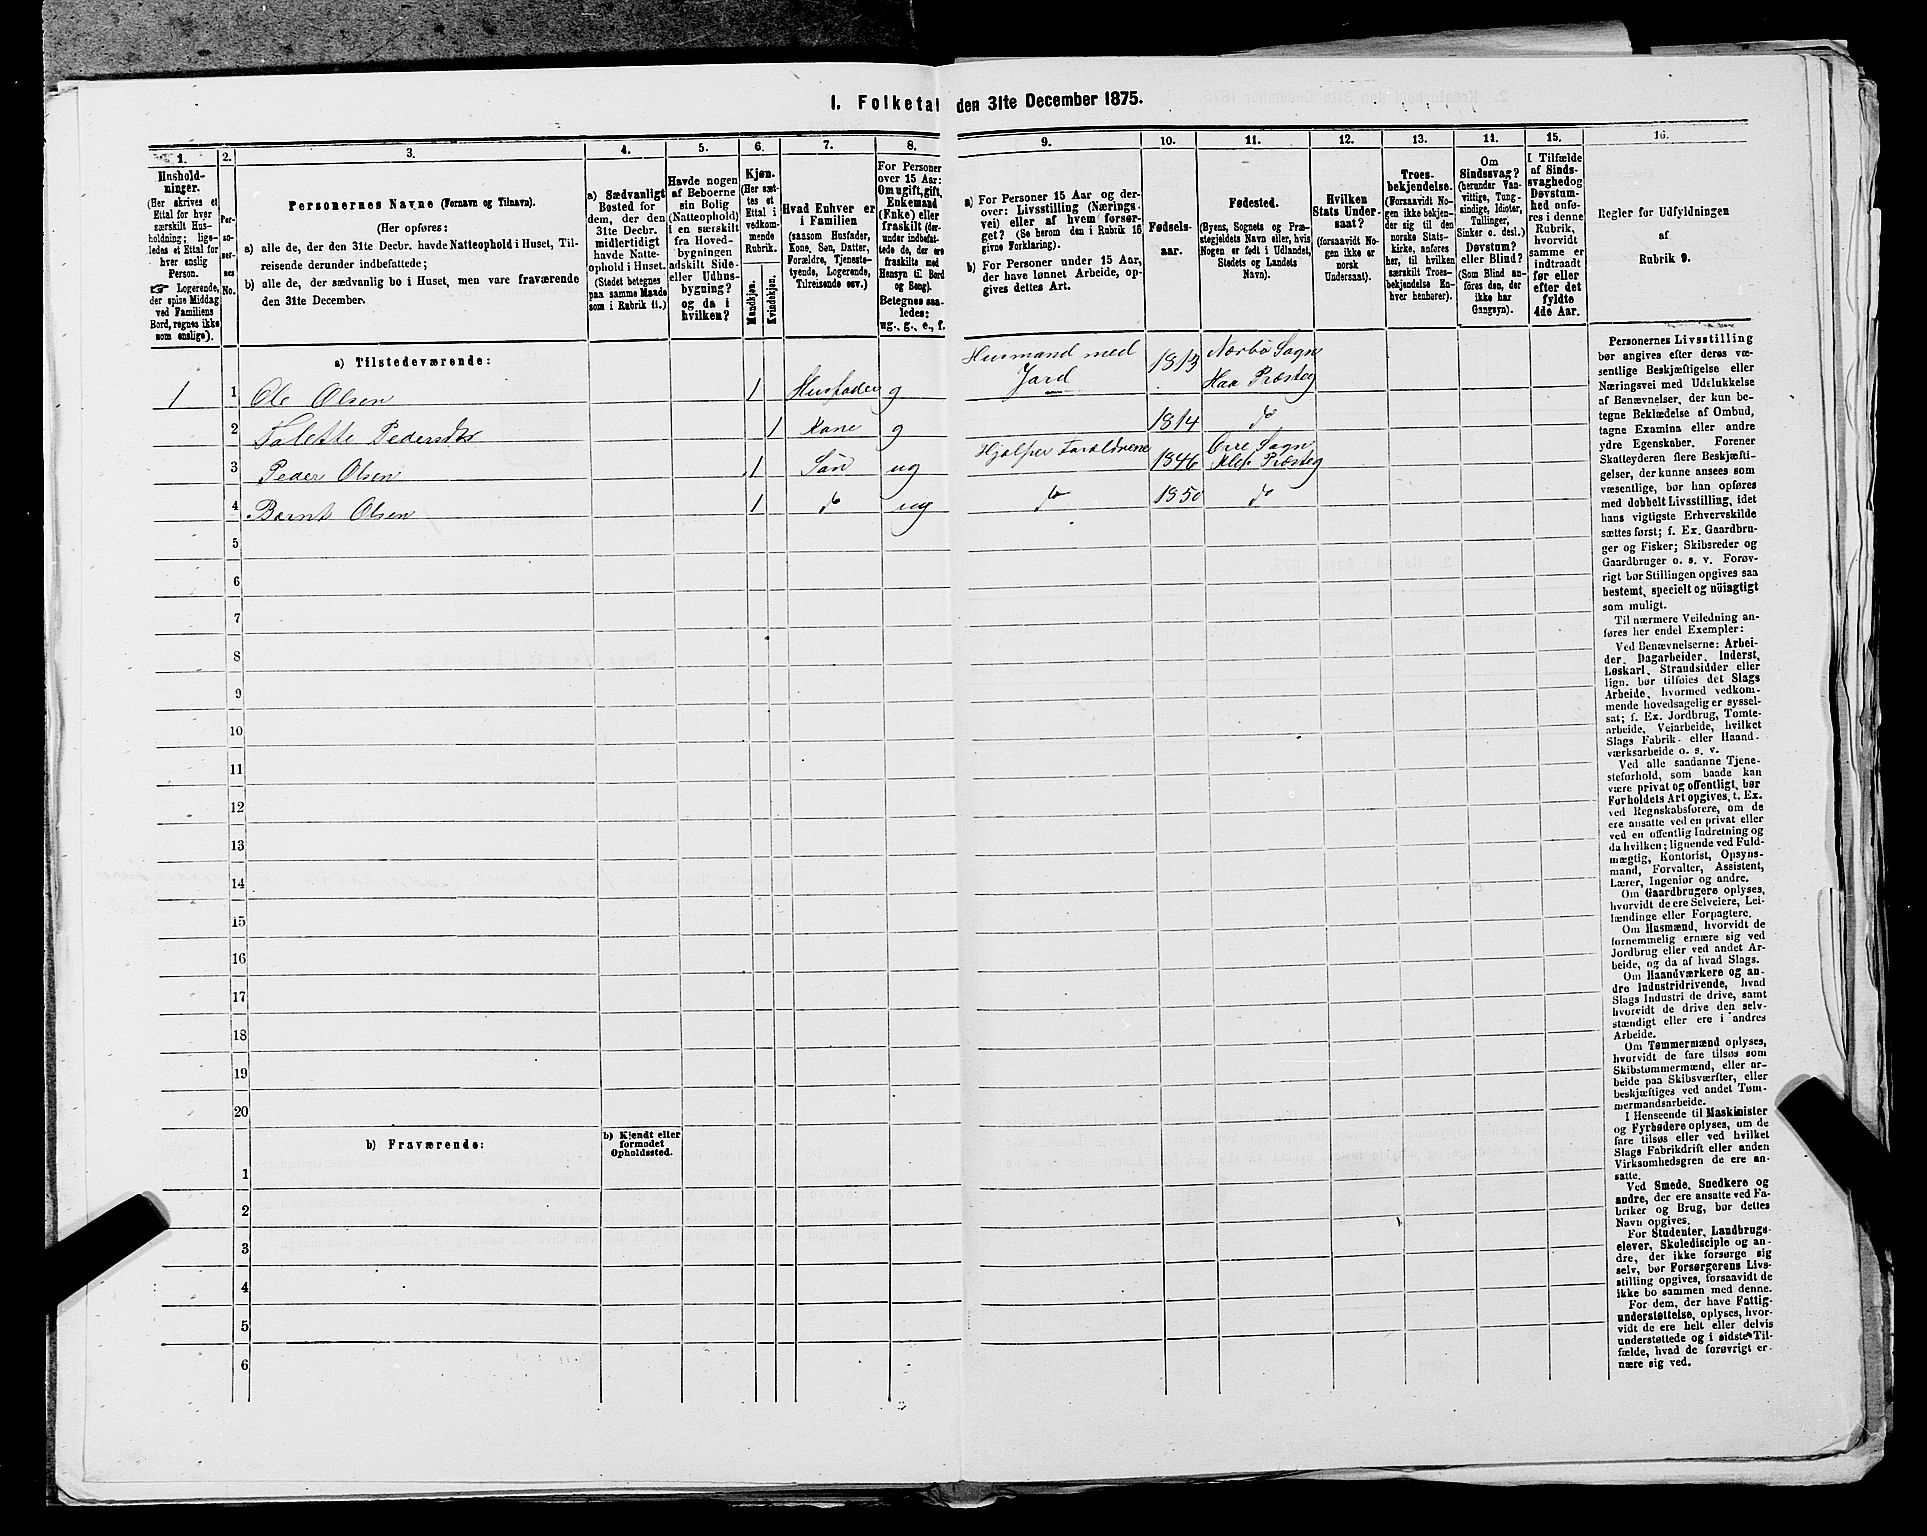 1. Folketal den 31te December 1875.
1. 2. 3. 4. 5. 6. 7. 8. 9. 10. 11. 12. 13. 14. 15. 16.
Husholdninger.
(Her skrives et
Ettal for hver
særskilt Husholdning;
ligeledes et Ettal for
hver enslig
Person.
☞ Logerende,
der spise Middag
ved Familiens
Bord, regnes ikke
som enslige).
Personernes No.
Personernes Navne (Fornavn og Tilnavn).
(Her opføres:
a) alle de, der den 31te Decbr. havde Natteophold i Huset, Tilreisende
derunder indbefattede;
b) alle de, der sædvanlig bo i Huset, men vare fraværende
den 31te December.
a) Sædvanligt
Bosted for
dem, der den
31te Decbr.
midlertidigt
havde Natteophold
i Huset.
(Stedet betegnes
paa samme Maade
som i Rubrik 11.)
Havde nogen
af Beboerne
sin Bolig
(Natteophold)
i en særskilt
fra Hovedbygningen
adskilt Side-
eller Udhusbygning?
og da i
hvilken?
Kjøn.
(Her sættes
et
Ettal i
vedkommende
Rubrik.
Mandkjøn.
Kvindekjøn.
Hvad Enhver er
i Familien
(saasom Husfader,
Kone, Søn, Datter,
Forældre, Tjenestetyende,
Logerende,
Tilreisende osv.)
For Personer
over 15 Aar:
Om ugift, gift,
Enkemand
(Enke) eller
fraskilt (derunder
indbefattede
de, der ere
fraskilte med
Hensyn til Bord
og Seng).
Betegnes saaledes:
ug., g., e., f.
a) For Personer 15 Aar og derover:
Livsstilling (Næringsvei)
eller af hvem forsørget?
(Se herom den i Rubrik 16
givne Forklaring).
b) For Personer under 15 Aar,
der have lønnet Arbeide, opgives
dettes Art.
Fødselsaar.
Fødested.
(Byens, Sognets og Præstegjeldets
Navn eller, hvis
Nogen er født i Udlandet,
Stedets og Landets
Navn).
Hvilken
Stats Undersaat?
(forsaavidt Nogen
ikke er
norsk
Undersaat).
Troesbekjendelse.
(Forsaavidt Nogen
ikke bekjender
sig til den
norske Statskirke,
anføres
her, til hvilken
særskilt Troesbekjendelse
Enhver
henhører).
Om
Sindssvag?
(herunder Vanvittige,
Tungsindige,
Idioter,
Tullinger,
Sinker o. desl.)
Døvstum?
eller Blind?
(Som Blind anføres
den, der
ikke har
Gangsyn).
I Tilfælde
af Sindssvaghed
og
Døvstumhed
anføres
i denne
Rubrik,
hvorvidt
samme er
indtraadt
før eller
efter det
fyldte
4de Aar.
Regler for Udfyldningen
af
Rubrik 9.
a) Tilstedeværende:
1 1 Ole Olsen 1 Husfader g Husmand med Jord 1813 Nærbø Sogn Haa Præsteg
2 Talette Pedersdtr 1 Kone g 1814 do
3 Peder Olsen 1 Søn ug Hjælper Forældrene 1846 Orre Sogn Klep Præsteg
4 Bernt Olsen 1 do ug do 1850 do
5
6
7
8
9
10
11
12
13
14
15
16
17
18
19
20
b) Fraværende:
b) Kjendt eller
formodet
Opholdssted.
1
2
3
4
5
6
Personernes Livsstilling
bør angives efter deres væsentlige
Beskjæftigelse eller
Næringsvei med Udelukkelse
af Benævnelser, der kun betegne
Beklædelse af Ombud,
tagne Examina eller andre
ydre Egenskaber. Forener
Skatteyderen flere Beskjæftigelser,
der kunne ansees som
væsentlige, bør han opføres
med dobbelt Livsstilling, idet
hans vigtigste Erhvervskilde
sættes først; f. Ex. Gaardbruger
og Fisker; Skibsreder og
Gaardbruger o. s. v. Forøvrigt
bør Stillingen opgives saa
bestemt, specielt og nöiagtigt
som muligt.
Til nærmere Veiledning anføres
her endel Exempler:
Ved Benævnelserne: Arbeider,
Dagarbeider, Inderst,
Løskarl, Strandsidder eller
lign. bør tilføies det Slags
Arbeide, hvormed vedkommende
hovedsagelig er sysselsat;
f. Ex. Jordbrug, Tomtearbeide,
Veiarbeide, hvilket
Slags Fabrik- eller Haandværksarbeide
o. s. v.
Ved alle saadanne Tjenesteforhold,
som baade kan
være privat og offentligt, bør
Forholdets Art opgives, t. Ex.
ved Regnskabsførere, om de
ere ansatte ved en privat eller
ved en offentlig Indretning og
da hvilken; lignende ved Fuldmægtig,
Kontorist, Opsynsmand,
Forvalter, Assistent,
Lærer, Ingeniør og andre.
Om Gaardbrugere oplyses,
hvorvidt de ere Selveiere, Leilændinge
eller Forpagtere.
Om Husmænd, hvorvidt de
fornemmelig ernære sig ved
Jordbrug eller ved andet Arbeide,
og da af hvad Slags.
Om Haandværkere og andre
Industridrivende, hvad
Slags Industri de drive, samt
hvorvidt de drive den selvstændigt
eller ere i andres
Arbeide.
Om Tømmermænd oplyses,
hvorvidt de fare tilsøs som
Skibstømmermænd, eller arbeide
paa Skibsværfter, eller
beskjæftiges ved andet Tømmermandsarbeide.
I Henseende til Maskinister
og Fyrbødere oplyses, om de
fare tilsøs eller ved hvilket
Slags Fabrikdrift eller anden
Virksomhedsgren de ere ansatte.
Ved Smede, Snedkere og
andre, der ere ansatte ved Fabriker
og Brug, bør dettes
Navn opgives.
For Studenter, Landbrugselever,
Skoledisciple og andre,
der ikke forsørge sig
selv, bør Forsørgerens Livsstilling
opgives, forsaavidt de
ikke bo sammen med denne.
For dem, der have Fattigunderstøttelse,
oplyses, hvorvidt
de ere helt eller delvis
understøttede og i sidste Tilfælde,
hvad de forøvrigt ernære
sig ved.